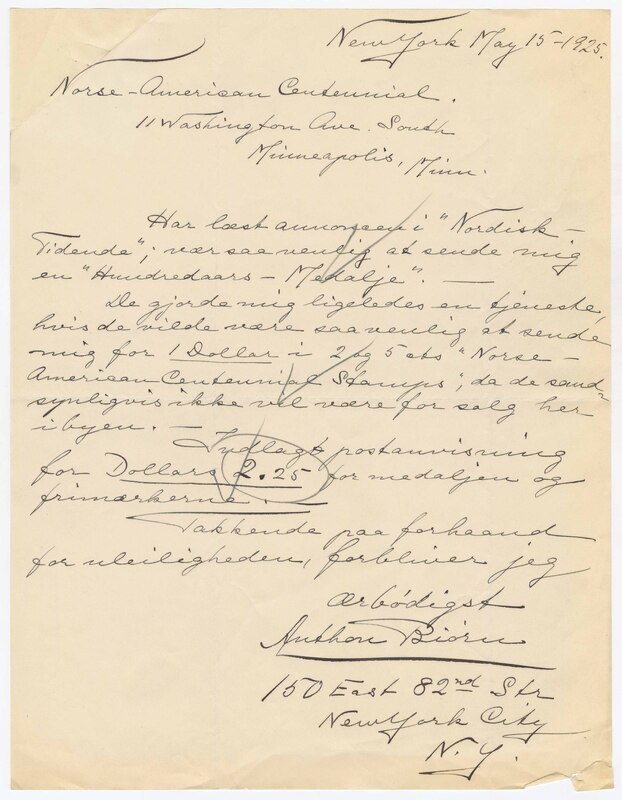 New York May 15-1925.
Norse-American Centennial.
11 Washington Ave. South
Minneapolis, Minn.
Har læst annoncen i "Nordisk-
Tidende"; vær saa venlig at sende mig
en "Hundredaars-Medalje". —
De gjorde mig ligeledes en tjeneste,
hvis de vilde være saa venlig at sende
mig for 1 Dollar i 2 og 5 cts "Norse-
American Centennial Stamps", da de sand-
synligvis ikke vil være for salg her
i byen. —
Indlagt postanvisning
for Dollars 2.25 for medaljen og
frimærkerne.
Takkende paa forhaand
for uleiligheden, forbliver jeg
ærbødigst
Anthon Biørn
150 East 82nd Str
New York City
N.Y.